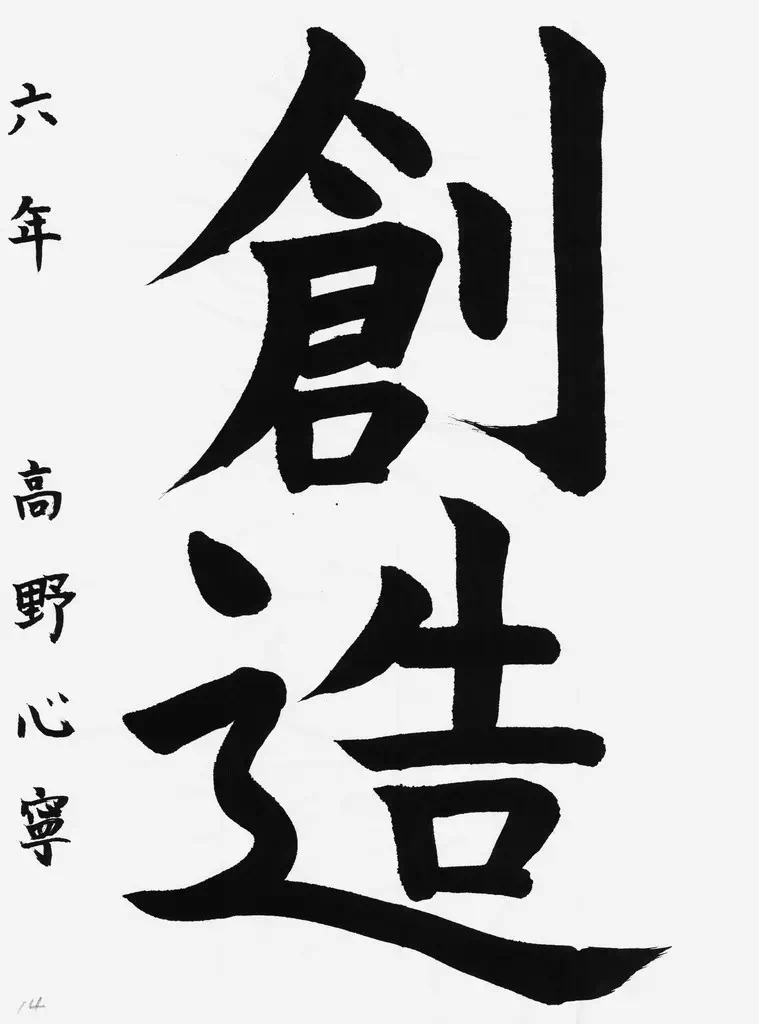 創造
六年 高野心寧